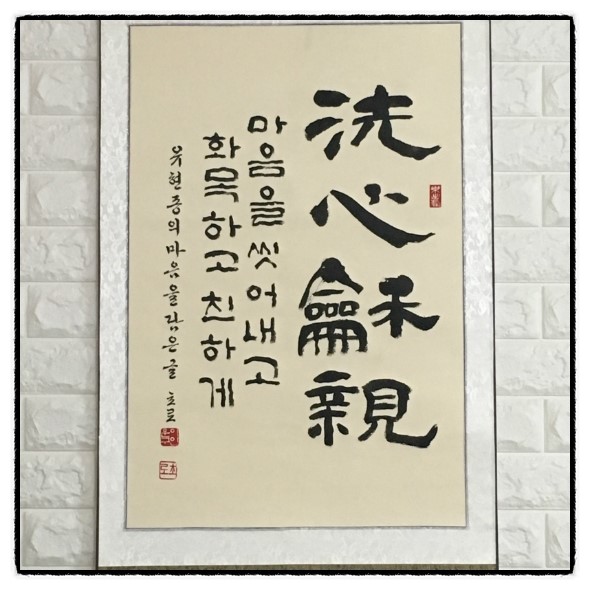 洗心龢親
마음을 씻어내고
화목하고 친하게
유현종의 마음을 담은 글 초로